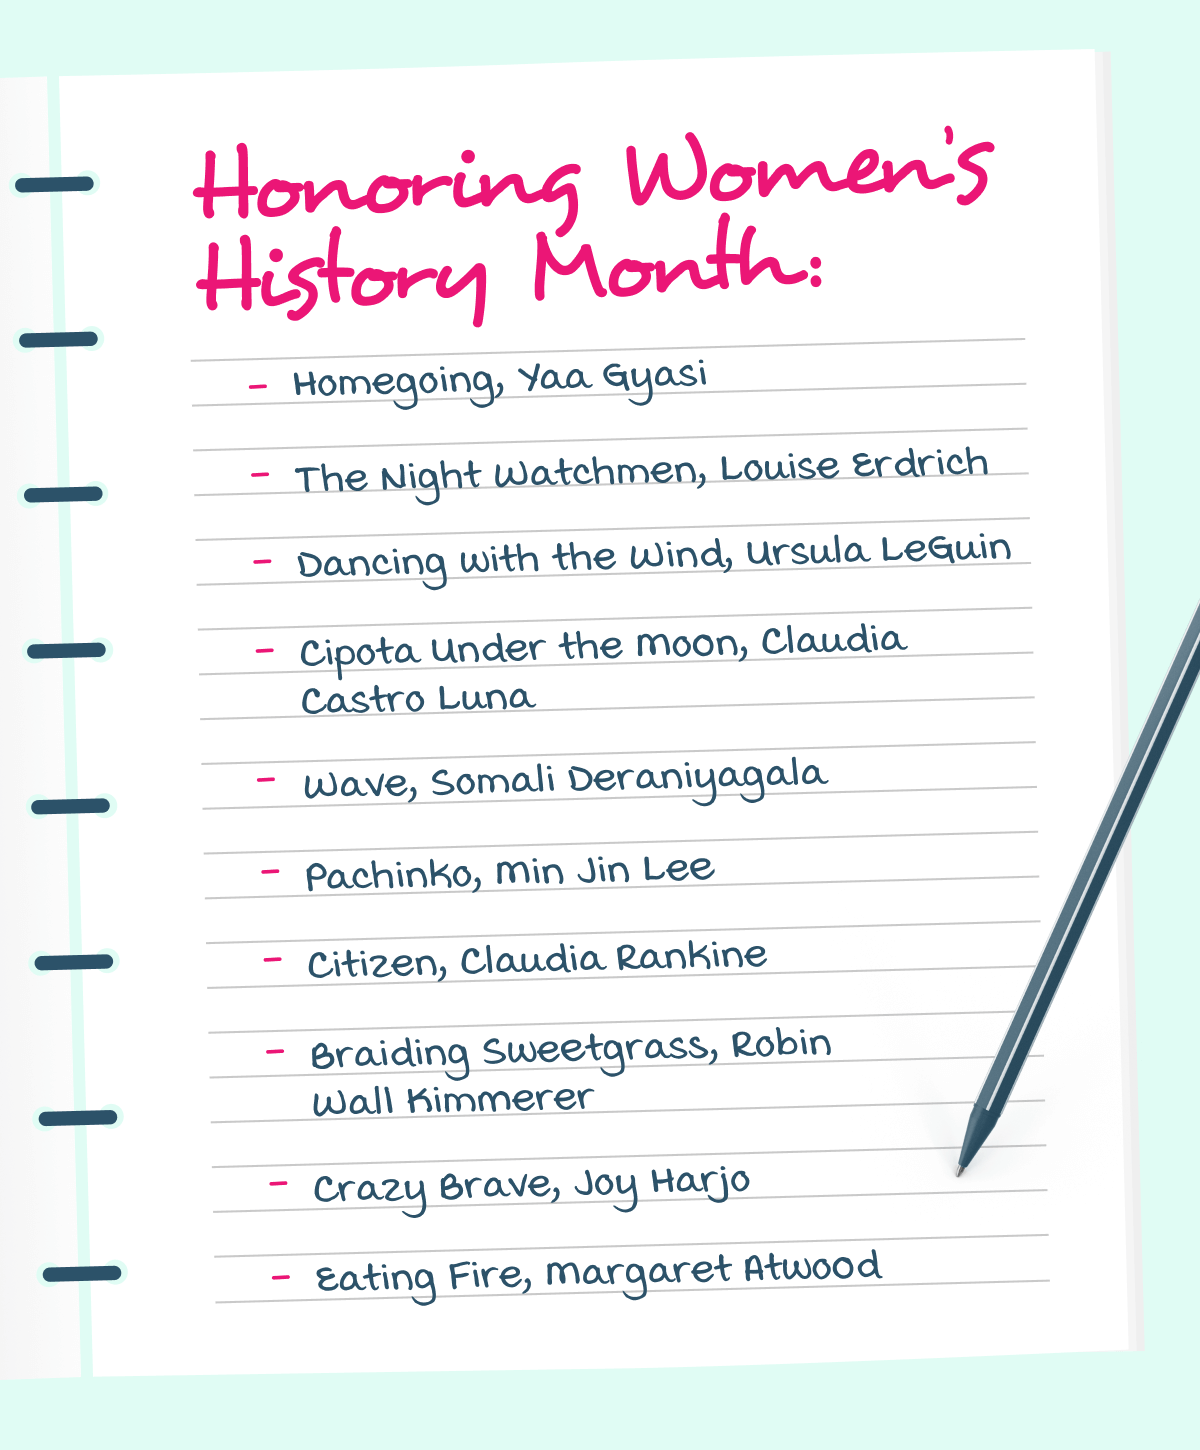 Honoring Women's
History Month:
- Homegoing, Yaa Gyasi
- The Night Watchmen, Louise Erdrich
- Dancing with the Wind, Ursula LeGuin
- Cipota Under the Moon, Claudia
Castro Luna
- Wave, Somali Deraniyagala
- Pachinko, Min Jin Lee
- Citizen, Claudia Rankine
- Braiding Sweetgrass, Robin
Wall Kimmerer
- Crazy Brave, Joy Harjo
- Eating Fire, Margaret Atwood